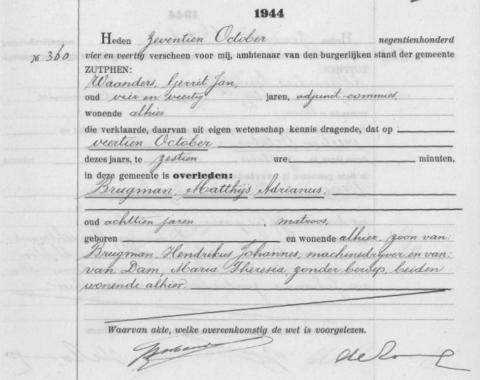 1944
Heden zeventien October negentienhonderd
№ 360 vier en veertig verscheen voor mij, ambtenaar van den burgerlijken stand der gemeente
ZUTPHEN:
Waanders, Gerrit Jan,
oud vier en veertig jaren, adjunct-commies,
wonende alhier
die verklaarde, daarvan uit eigen wetenschap kennis dragende, dat op
veertien October
dezes jaars, te zestien ure minuten,
in deze gemeente is overleden:
Brugman, Matthijs Adrianus,
oud achttien jaren, matroos,
geboren en wonende alhier, zoon van:
Brugman, Hendrikus Johannes, machinedrijver en van:
van Dam, Maria Theresia, zonder beroep, beiden
wonende alhier.
Waarvan akte, welke overeenkomstig de wet is voorgelezen.